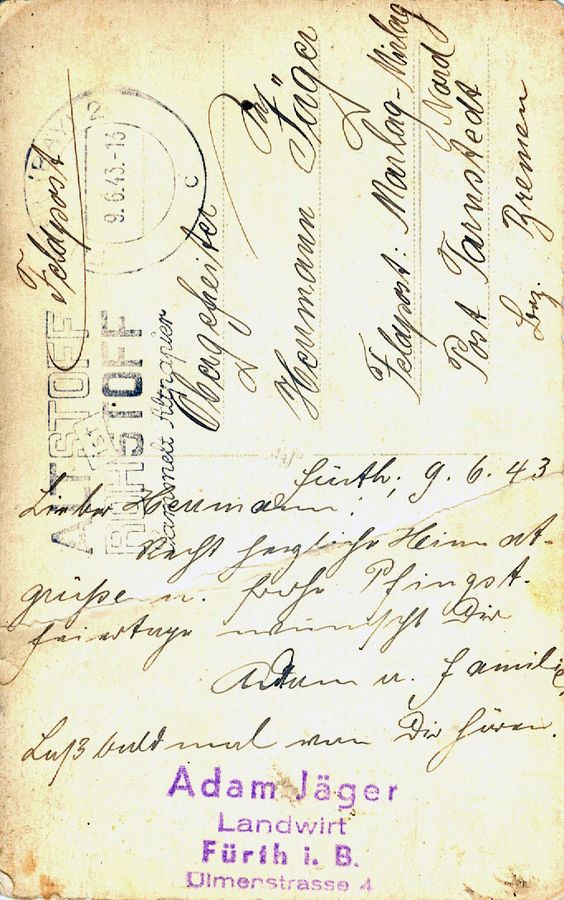 Feldpost
9.6.43.-13
c
ALTSTOFF
IST
ROHSTOFF
sammelt Altpapier
Obergefreiter
Hermann Jäger
Feldpost: Marlag-Milag
Nord
Post Tarmstedt
Bez. Bremen
Fürth, 9. 6. 43
Lieber Hermann!
Recht herzliche Heimat-
grüße u. frohe Pfingst-
feiertage wünscht Dir
Adam u. Familie
Laß bald mal von Dir hören.
Adam Jäger
Landwirt
Fürth i. B.
Ulmenstrasse 4